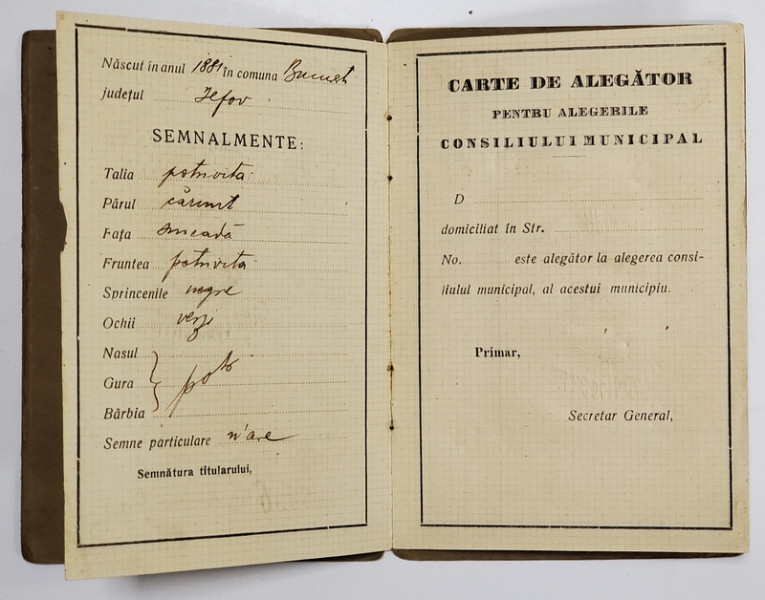 Născut în anul 1881 în comuna Bucureșt
județul Ilfov
SEMNALMENTE:
Talia potrivita
Părul cărunt
Fața smeadă
Fruntea potrivita
Sprincenile negre
Ochii verzi
Nasul
Gura potr
Bărbia
Semne particulare n'are
Semnătura titularului,
CARTE DE ALEGĂTOR
PENTRU ALEGERILE
CONSILIULUI MUNICIPAL
D
domiciliat în Str.
No. este alegător la alegerea consi-
liului municipal, al acestui municipiu.
Primar,
Secretar General,